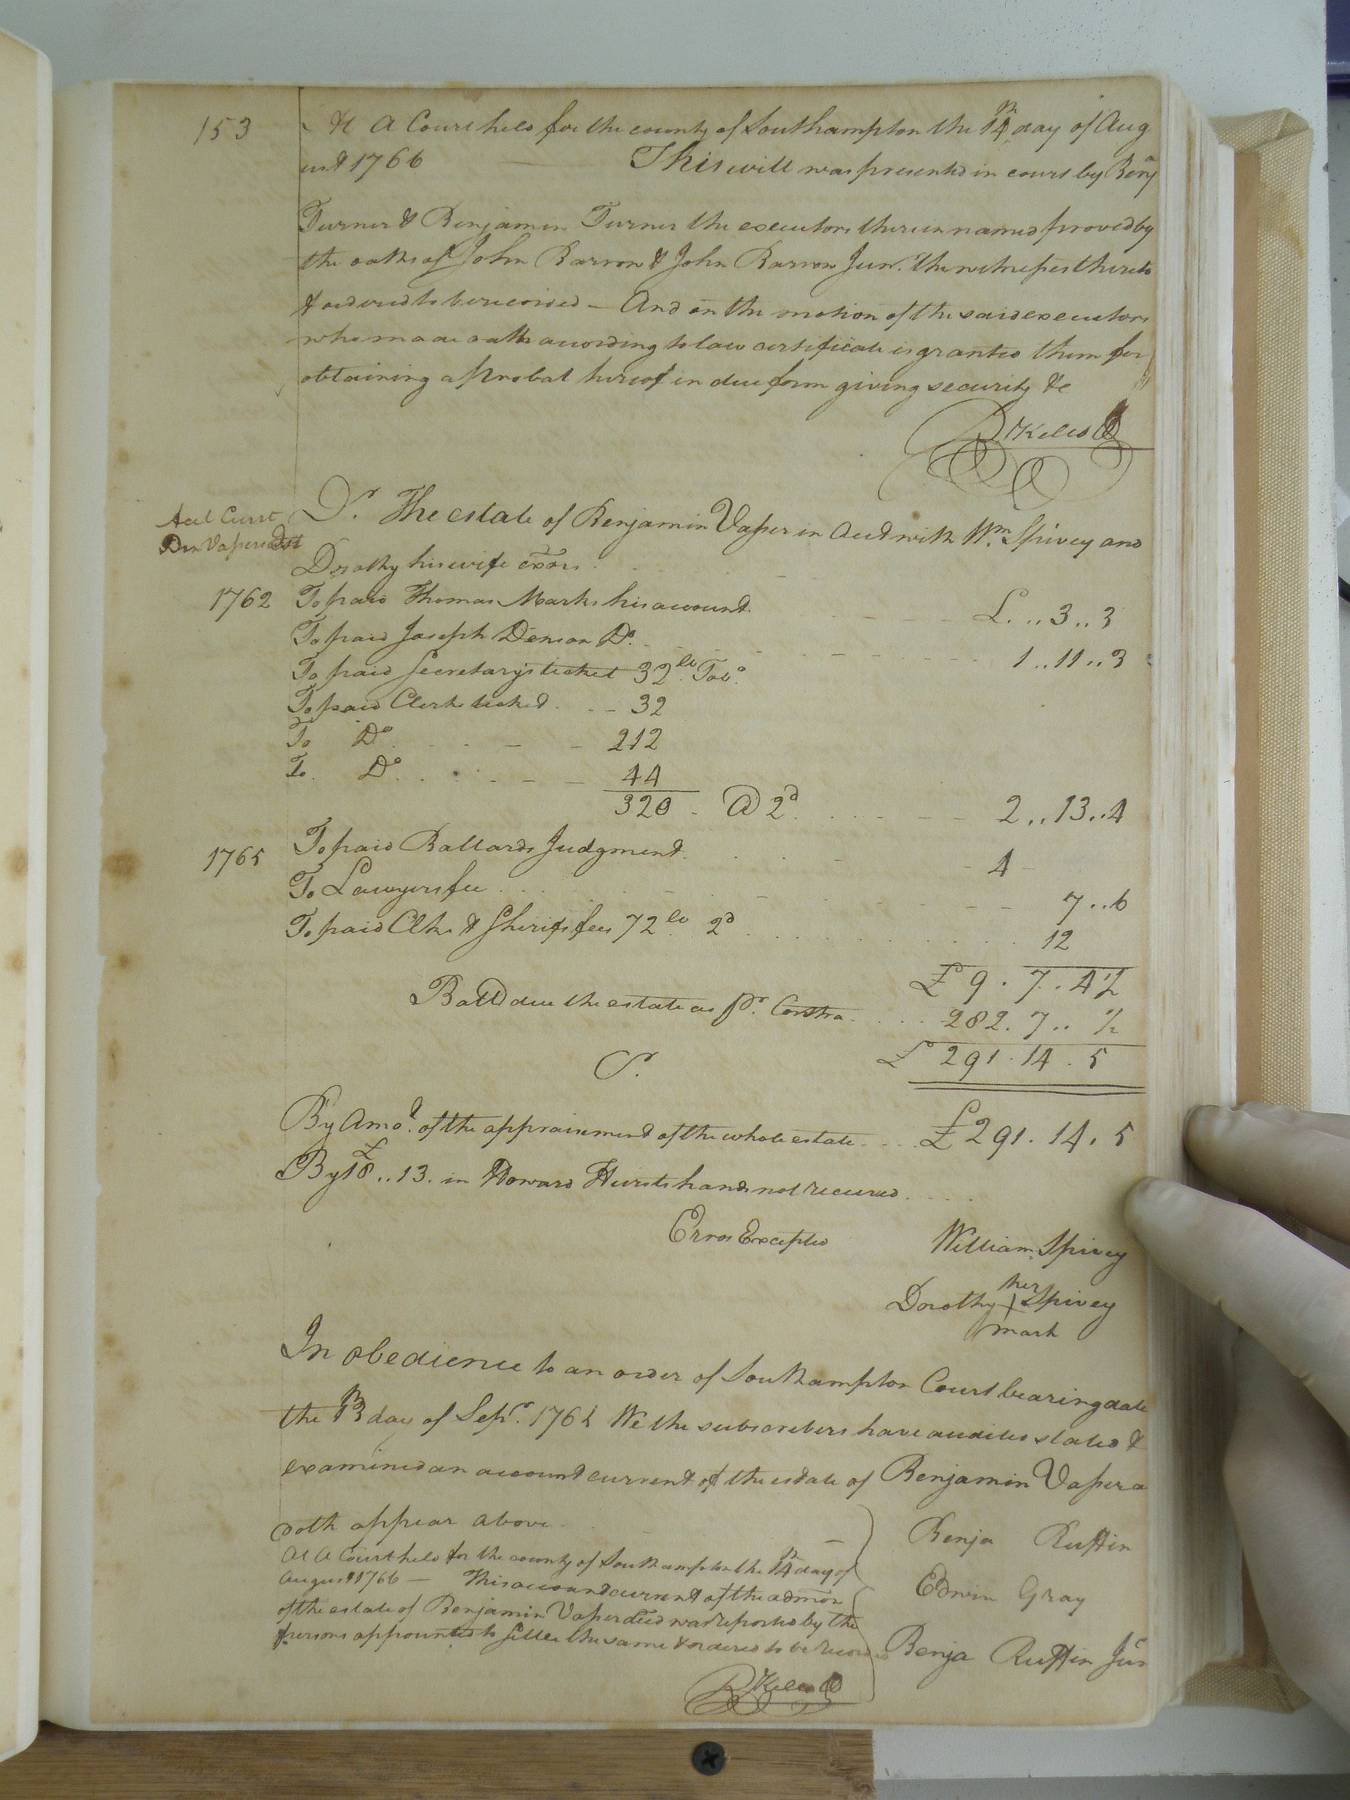 153
At A Court held for the county of Southampton the 14th day of Aug
ust 1766 — This will was presented in court by Benja
Turner & Benjamin Turner the executors therein named proved by
the oaths of John Barrow & John Barrow Junr. the witnesses thereto
& ordered to be recorded – And on the motion of the said executors
who made oath according to law certificate is granted them for
obtaining a Probat hereof in due form giving security &c
R Kello C
Act Curt
Ben Vasers Est
Dr. The estate of Benjamin Vaser in Acct with Wm. Spivey and
Dorothy his wife exors.
1762 To paid Thomas Marks his account £. .. 3 .. 3
To paid Joseph Denson Do. 1 .. 11 .. 3
To paid Secretarys ticket 32 lb. Tobo.
To paid Clerks ticket 32
To Do 212
To. Do. 44
320 - @ 2d. 2 .. 13 .. 4
1765 To paid Ballards Judgment. 4
To Lawyers fee 7 .. 6
To paid Clks & Sherifs fees 72 lb 2d 12
£ 9 . 7 . 4½
Ball due the estate as pr. Contra. 282 . 7 .. ½
£ 291 . 14 . 5
Cr.
By Amot. of the appraisment of the whole estate £ 291 . 14 . 5
By £18 .. 13. in Howard Hursts hands not received
Erros Excepted William Spivey
her
Dorothy + Spivey
mark
In obedience to an order of Southampton Court bearing date
the 13th day of Sepr. 1764 We the subscribers have audited stated &
examined an account current of the estate of Benjamin Vaser as
doth appear above
Benja Ruffin
At A Court held for the county of Southampton the 14th day of
August 1766 — This account current of the admon
Edwin Gray
of the estate of Benjamin Vaser decd was reported by the
persons appointed to settle the same & ordered to be recorded
Benja Ruffin Jur
R Kello C